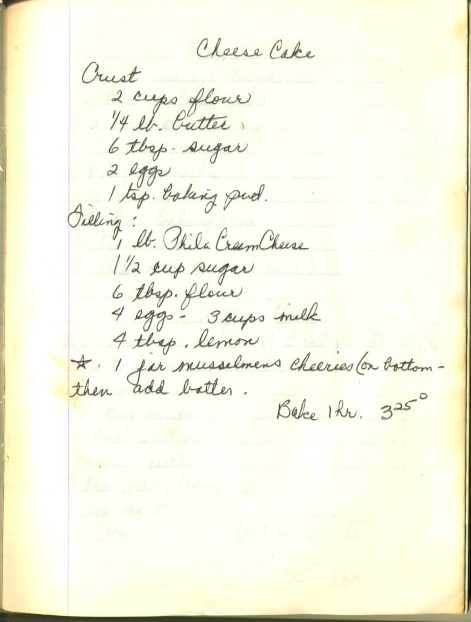 Cheese Cake
Crust
2 cups flour
1/4 lb. butter
6 tbsp. sugar
2 eggs
1 tsp. baking pwd.
Filling:
1 lb. Phila Cream Cheese
1 1/2 cup sugar
6 tbsp. flour
4 eggs - 3 cups milk
4 tbsp. lemon
☆. 1 jar musselmens cheeries (on bottom -
then add batter.
Bake 1 hr. 325°